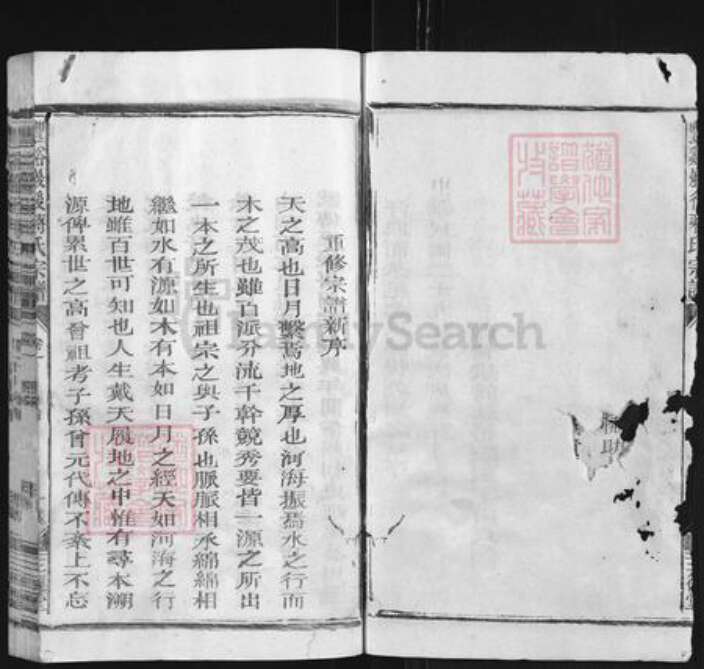 重修宗譜新序
天之高也日月繫焉地之厚也河海振焉水之行而
木之茂也雖百派分流千幹競秀要皆一源之所出
一本之所生也祖宗之與子孫也脈脈相承綿綿相
繼如水有源如木有本如日月之經天如河海之行
地雖百世可知也人生戴天履地之中惟有尋本溯
源俾累世之高曾祖考子孫曾元代傳不紊上不忘
氏宗譜
卷一
FamilySearch
猶他家
譜學會
特藏
助